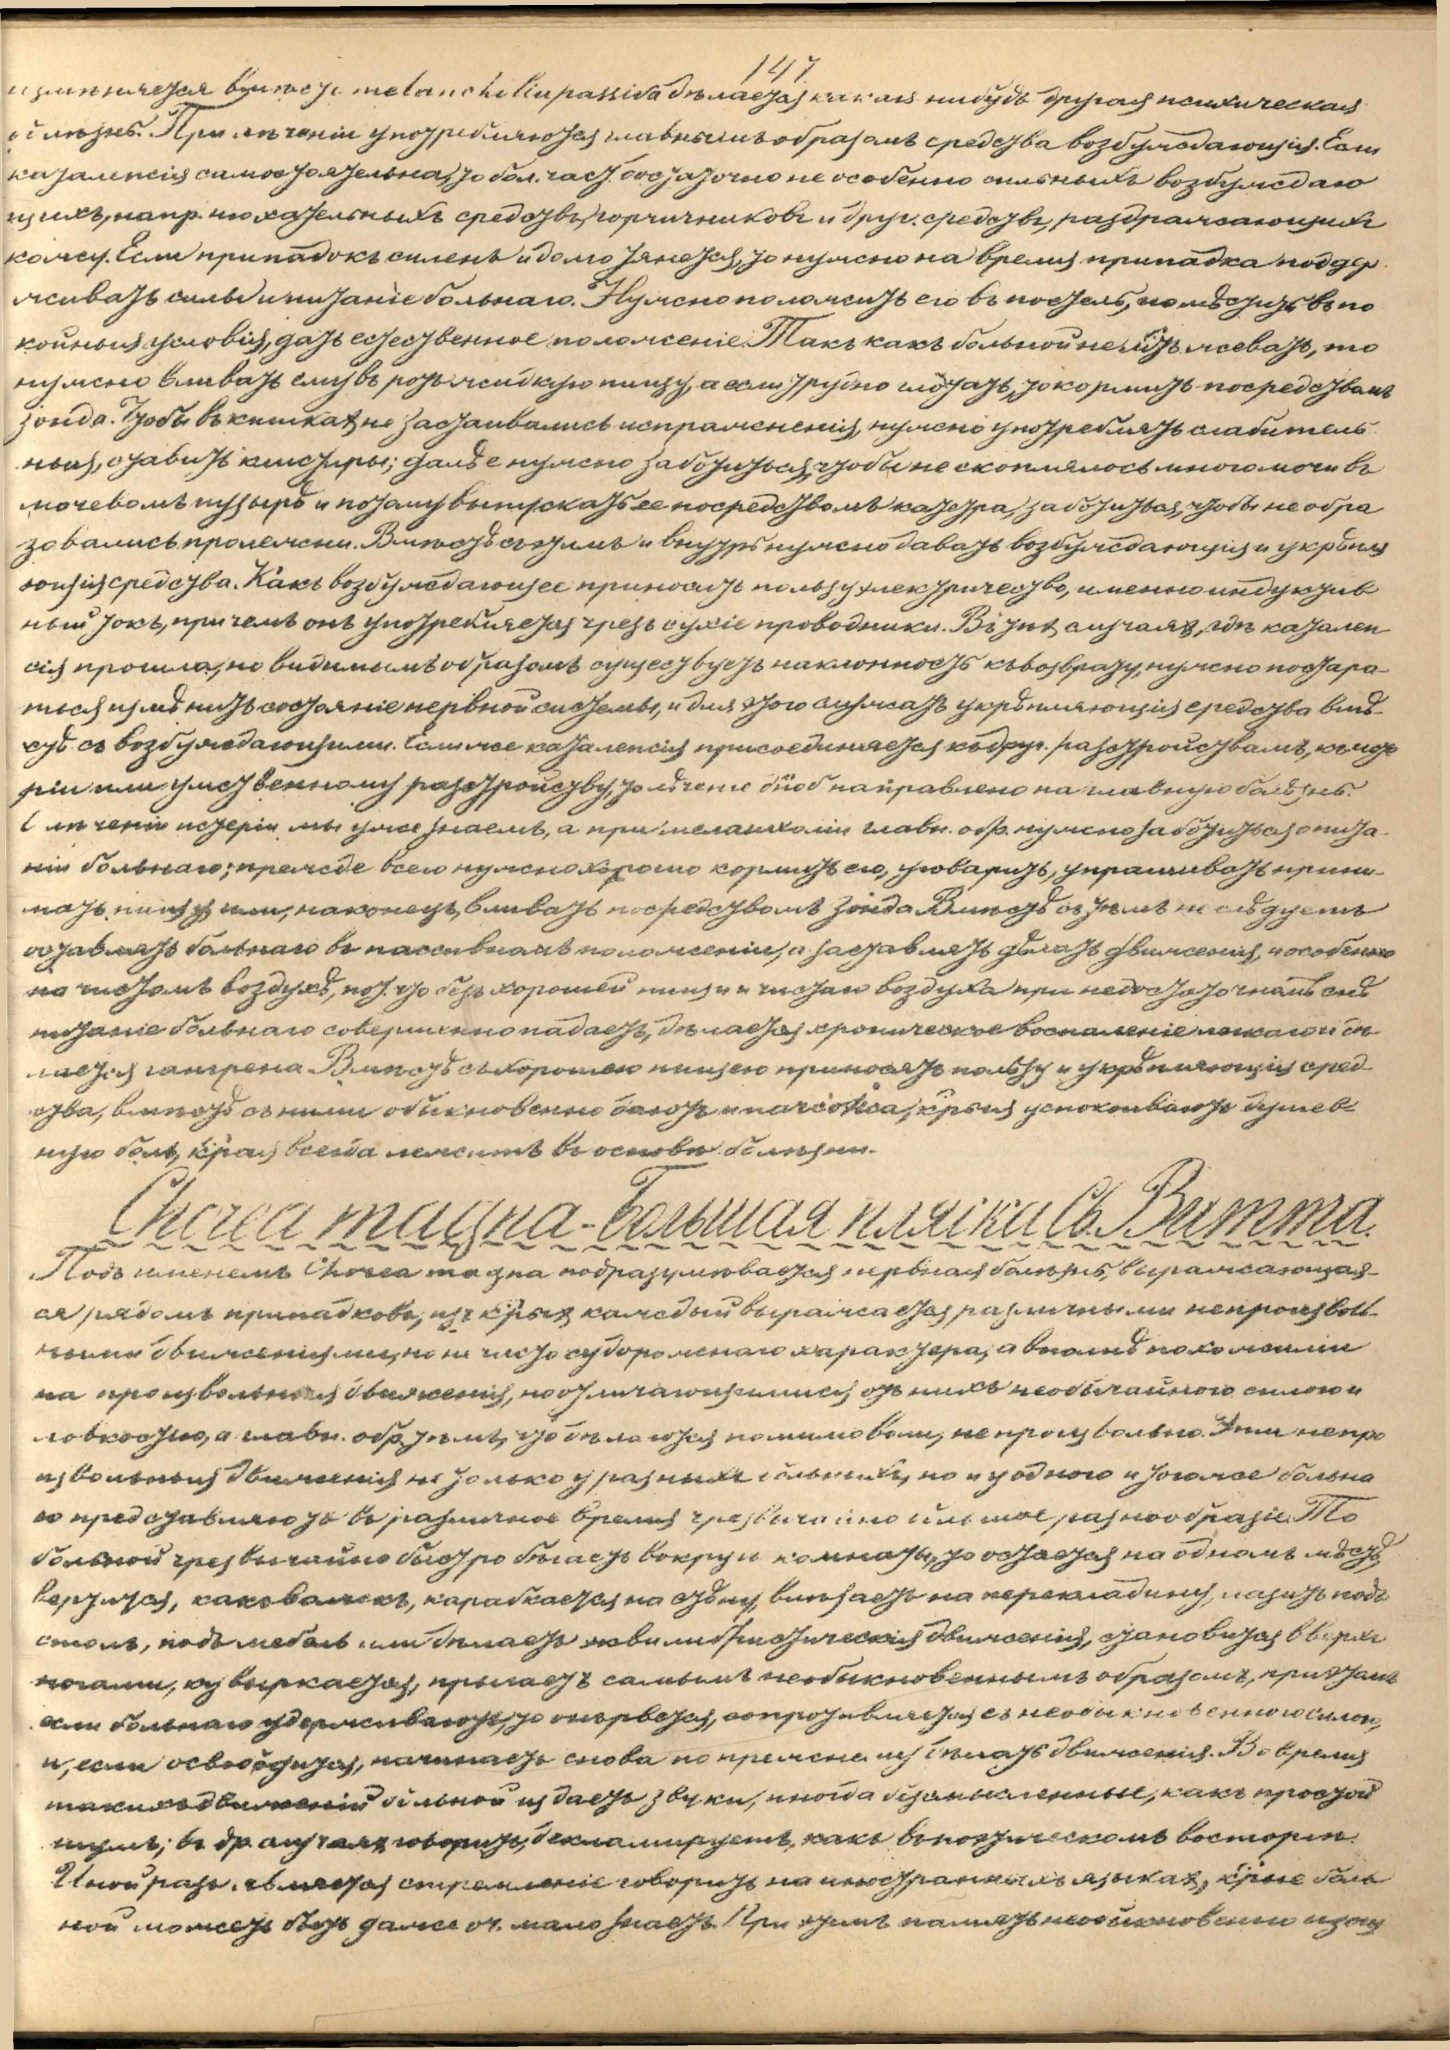 147
измѣняется вмѣсто melancholia passiva дѣлается какая нибудь другая психическая
болѣзнь. При лѣченіи употребляются главнымъ образомъ средства возбуждающія. Если
каталепсія самостоятельна, то бол. част. достаточно не особенно сильныхъ возбуждаю
щихъ, напр. нюхательныхъ средствъ, горчичниковъ и друг. средствъ, раздражающихъ
кожу. Если припадокъ силенъ и долго тянется, то нужно на время припадка поддер
живать силы и питаніе больнаго. Нужно положить его въ постель, помѣстить въ по
койныя условія, дать естественное положеніе. Такъ какъ больной не м̃тъ жевать, то
нужно вливать ему въ ротъ жидкую пищу, а если трудно глотать, то кормить посредствомъ
зонда. Чтобы въ кишкахъ не застаивались испражненія, нужно употреблять слабитель
ныя, ставить клистиры; далѣе нужно заботиться, чтобы не скоплялось много мочи въ
мочевомъ пузырѣ и потому выпускать ее посредствомъ катетра, заботиться, чтобы не обра
зовались пролежни. Вмѣстѣ съ этимъ и внутрь нужно давать возбуждающія и укрѣпля
ющія средства. Какъ возбуждающее приноситъ пользу электричество, именно индуктив
ный токъ, причемъ онъ употребляется чрезъ сухіе проводники. Въ тѣхъ случаяхъ, гдѣ каталеп
сія прошла, но видимымъ образомъ существуетъ наклонность къ возврату, нужно постара-
ться измѣнить состояніе нервной системы, и для этого служатъ укрѣпляющія средства вмѣ-
стѣ съ возбуждающими. Если же каталепсія присоединяется къ друг. разстройствамъ, къ исте
ріи или умственному разстройству, то лѣченіе д. б. направлено на главную болѣзнь.
О лѣченіи истеріи мы уже знаемъ, а при меланхоліи главн. обр. нужно заботиться о пита-
ніи больнаго; прежде всего нужно хорошо кормить его, уговарить, упрашивать прини-
мать пищу или, наконецъ, вливать посредствомъ зонда. Вмѣстѣ съ тѣмъ не слѣдуетъ
оставлять больнаго въ пассивномъ положеніи, а заставлять дѣлать движенія, и особенно
на чистомъ воздухѣ, пот. что безъ хорошей пищи и чистаго воздуха при недостаточномъ снѣ
питаніе больнаго совершенно падаетъ, дѣлается хроническое воспаленіе легкаго и дѣ
лается гангрена. Вмѣстѣ съ хорошею пищею приносятъ пользу и укрѣпляющія сред
ства, вмѣстѣ съ ними обыкновенно даютъ и narcotica, к̃рыя успокоиваютъ душев-
ную боль, к̃рая всегда лежитъ въ основѣ болѣзни.
Chorea magna - Большая пляска Св. Витта.
Подъ именемъ Chorea magna подразумѣвается нервная болѣзнь, выражающая-
ся рядомъ припадковъ, изъ к̃рыхъ каждый выражается различными непроизволь-
ными движеніями, но не чисто судорожнаго характера, а вполнѣ похожими
на произвольныя движенія, но отличающимися отъ нихъ необычайною силою и
ловкостью, а главн. обр. тѣмъ, что дѣлаются помимо воли, непроизвольно. Эти непро
извольныя движенія не только у разныхъ больныхъ, но и у одного и того же больна
го представляютъ въ различное время чрезвычайно большое разнообразіе. То
больной чрезвычайно быстро бѣгаетъ вокругъ комнаты, то остается на одномъ мѣстѣ,
вертится, какъ волчекъ, карабкается на стѣну, влѣзаетъ на перекладину, лазитъ подъ
столъ, подъ мебель или дѣлаетъ эквилибристическія движенія, становится вверхъ
ногами, кувыркается, прыгаетъ самымъ необыкновеннымъ образомъ, при этомъ
если больнаго удерживаютъ, то онъ рвется, сопротивляется съ необыкновенною силою,
и, если освободится, начинаетъ снова по прежнему дѣлать движенія. Во время
такихъ движеній больной издаетъ звуки, иногда безсмысленные, какъ простой
шумъ; въ др. случаяхъ говоритъ, декламируетъ, какъ въ поэтическомъ восторгѣ.
Иной разъ является стремленіе говорить на иностранныхъ языкахъ, к̃рые боль
ной можетъ быть даже оч. мало знаетъ. При этомъ память необыкновенно изощ